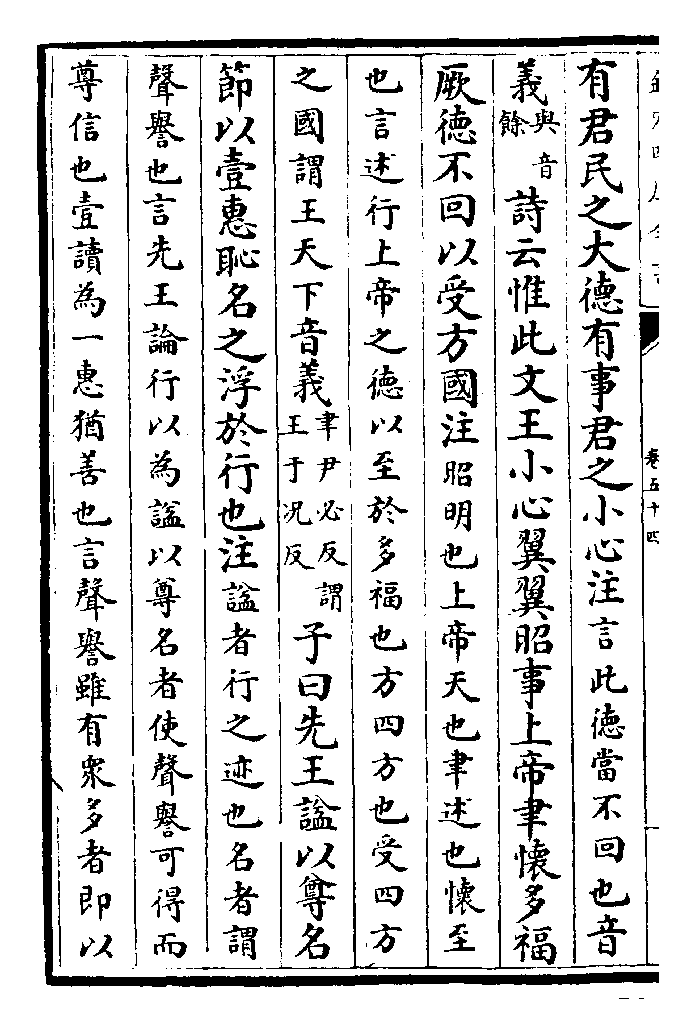 卷五十四
有君民之大德有事君之小心注言此德當不回也音
義與音餘詩云惟此文王小心翼翼昭事上帝聿懷多福
厥德不回以受方國注昭明也上帝天也聿述也懷至
也言述行上帝之德以至於多福也方四方也受四方
之國謂王天下音義聿尹必反謂王于况反子曰先王諡以尊名
節以壹惠恥名之浮於行也注諡者行之迹也名者謂
聲譽也言先王論行以為諡以尊名者使聲譽可得而
尊信也壹讀為一惠猶善也言聲譽雖有衆多者即以